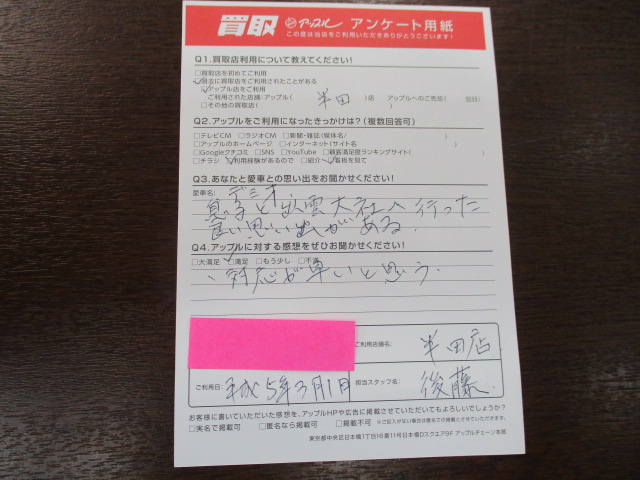 買取 アップル アンケート用紙
この度は当店をご利用いただきありがとうございます!
Q1.買取店利用について教えてください!
□買取店を初めてご利用
□過去に買取店をご利用されたことがある
□アップル店をご利用
ご利用された店舗:アップル( 半田 )店 アップルへのご売却( 回目)
□その他の買取店( )
Q2.アップルをご利用になったきっかけは?(複数回答可)
□テレビCM □ラジオCM □新聞・雑誌(媒体名/ )
□アップルのホームページ □インターネット(サイト名 )
□Googleクチコミ □SNS □YouTube □顧客満足度ランキングサイト( )
□チラシ □利用経験があるので □紹介 □看板を見て
Q3.あなたと愛車との思い出をお聞かせください!
愛車名: デミオ
息子と出雲大社へ行った
良い思い出がある.
Q4.アップルに対する感想をぜひお聞かせください!
□大満足 □満足 □もう少し □不満
、対応が早いと思う.
ご利用店舗名: 半田店
ご利用日: 平成5年3月1日 担当スタッフ名: 後藤.
お客様に書いていただいた感想を、アップルHPや広告に掲載させていただいてもよろしいでしょうか?
□実名で掲載可 □匿名なら掲載可 □掲載不可 ※ご記入がない場合は匿名での掲載とさせていただきます。
東京都中央区日本橋1丁目16番11号日本橋Dスクエア9F アップルチェーン本部